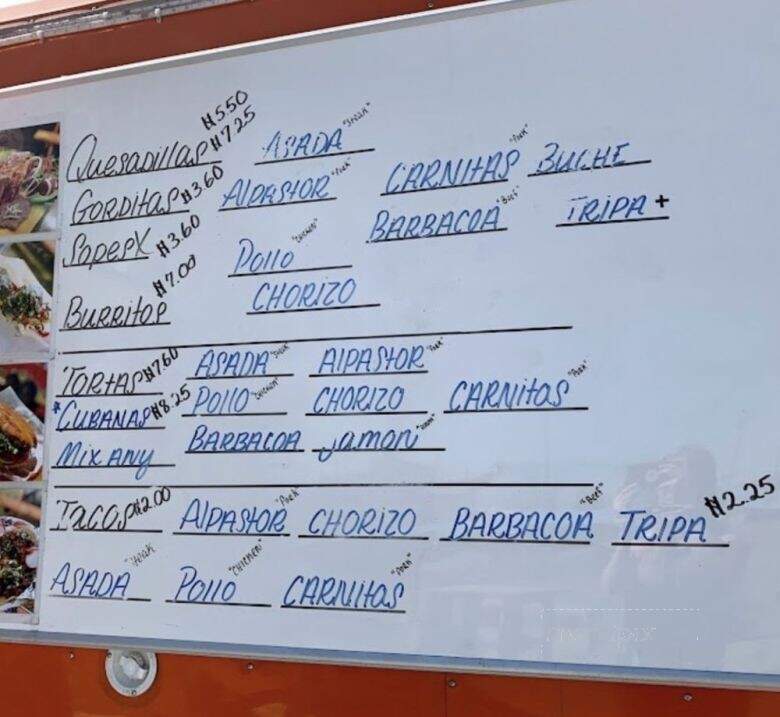 QuesadillaS $5.50 $7.25 ASADA "Steak"
GORDITAS $3.60 AlPAStOR "Pork" CARNItAS "Pork" BUCHE
SopesX $3.60 BARBACOA "Beef" TRIPA+
Pollo "CHICKEN"
BURRitoS $7.00 CHORIZO
TORtAS $7.60 ASADA "Steak" AlPAStOR "Pork"
*CUBANAS $8.25 Pollo "CHICKEN" CHORIZO CARNitaS "Pork"
Mix ANy BARBACOA Jamon
TACOS $2.00 AlPAStOR "Pork" CHORIZO BARBACOA "Beef" TRIPA $2.25
ASADA "Steak" Pollo "CHICKEN" CARNItaS "Pork"